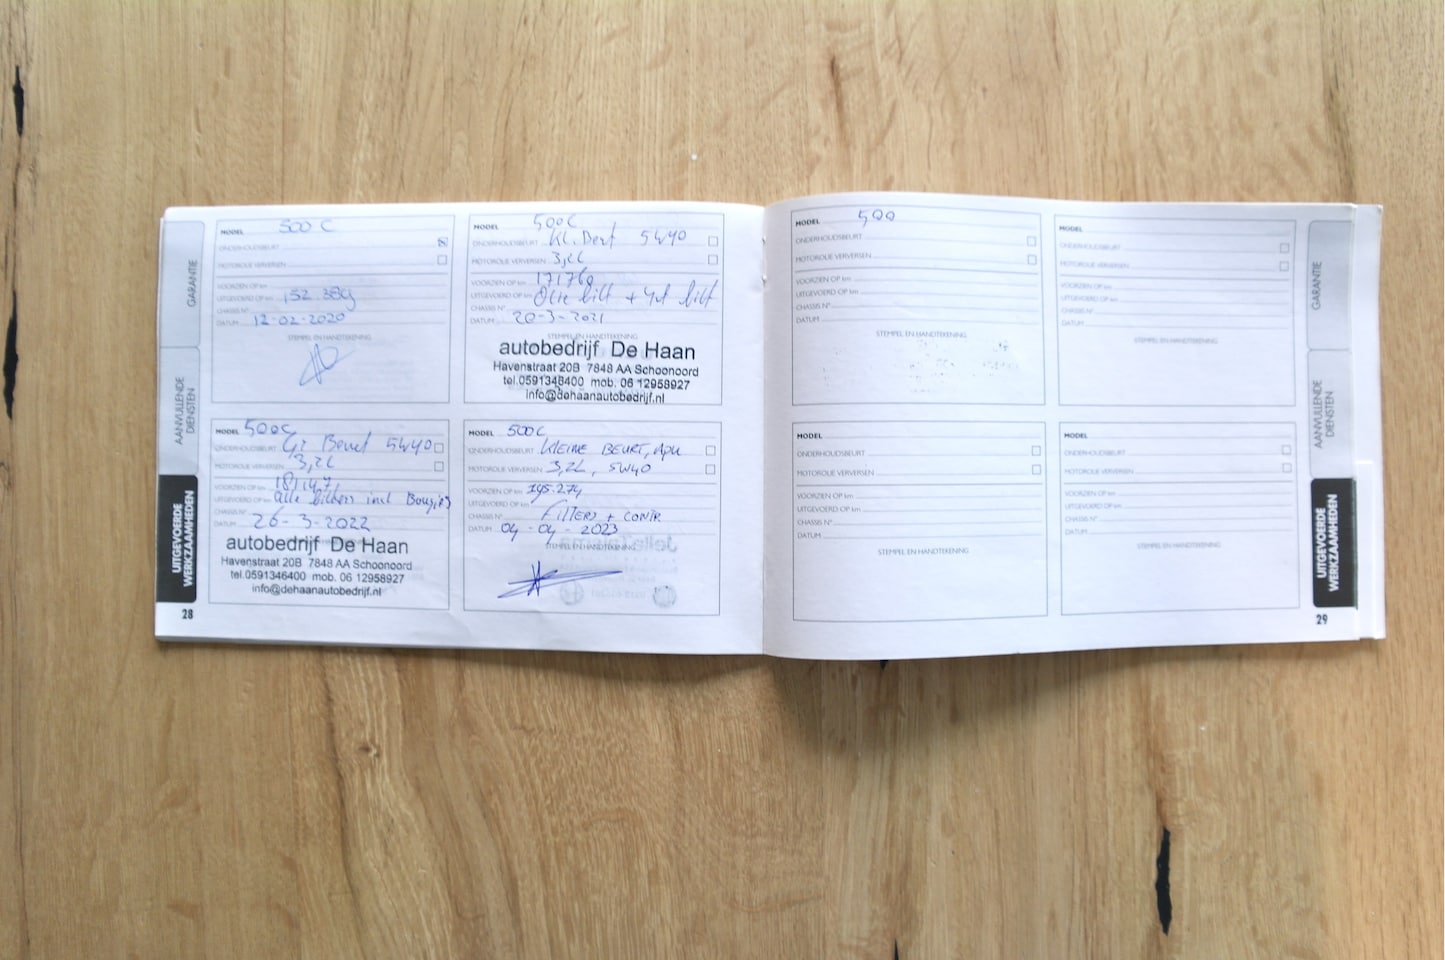 GARANTIE
AANVULLENDE
DIENSTEN
UITGEVOERDE
WERKZAAMHEDEN
28
MODEL 500 C
ONDERHOUDSBEURT
MOTOROLIE VERVERSEN
VOORZIEN OP km
UITGEVOERD OP km 152.389
CHASSIS N°
DATUM 12-02-2020
STEMPEL EN HANDTEKENING
MODEL 500C
ONDERHOUDSBEURT Kl. 5W40
MOTOROLIE VERVERSEN 3,2L
VOORZIEN OP km 171760
UITGEVOERD OP km + filt
CHASSIS N°
DATUM 20-3-2021
STEMPEL EN HANDTEKENING
autobedrijf De Haan
Havenstraat 20B 7848 AA Schoonoord
tel.0591346400 mob. 06 12958927
info@dehaanautobedrijf.nl
MODEL 500C
ONDERHOUDSBEURT 5W40
MOTOROLIE VERVERSEN 3,2L
VOORZIEN OP km
UITGEVOERD OP km alle filters incl Bougies
CHASSIS N°
DATUM 26-3-2022
autobedrijf De Haan
Havenstraat 20B 7848 AA Schoonoord
tel.0591346400 mob. 06 12958927
info@dehaanautobedrijf.nl
MODEL 500C
ONDERHOUDSBEURT KLEINE BEURT, APK
MOTOROLIE VERVERSEN 3,2L, 5W40
VOORZIEN OP km 195.274
UITGEVOERD OP km
CHASSIS N° FILTERS + CONTR.
DATUM 04-04-2023
STEMPEL EN HANDTEKENING
MODEL 500
ONDERHOUDSBEURT
MOTOROLIE VERVERSEN
VOORZIEN OP km
UITGEVOERD OP km
CHASSIS N°
DATUM
STEMPEL EN HANDTEKENING
MODEL
ONDERHOUDSBEURT
MOTOROLIE VERVERSEN
VOORZIEN OP km
UITGEVOERD OP km
CHASSIS N°
DATUM
STEMPEL EN HANDTEKENING
MODEL
ONDERHOUDSBEURT
MOTOROLIE VERVERSEN
VOORZIEN OP km
UITGEVOERD OP km
CHASSIS N°
DATUM
STEMPEL EN HANDTEKENING
MODEL
ONDERHOUDSBEURT
MOTOROLIE VERVERSEN
VOORZIEN OP km
UITGEVOERD OP km
CHASSIS N°
DATUM
STEMPEL EN HANDTEKENING
GARANTIE
AANVULLENDE
DIENSTEN
UITGEVOERDE
WERKZAAMHEDEN
29